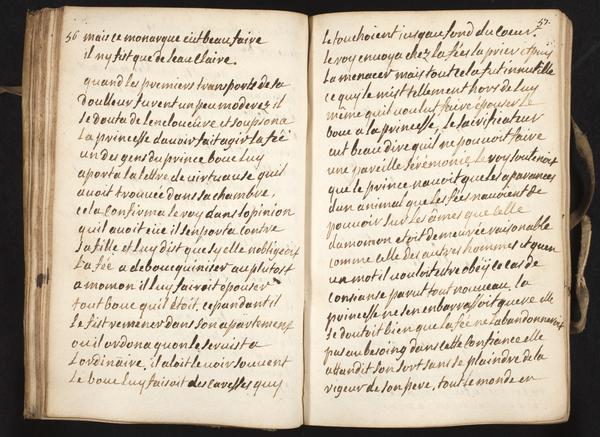 56 mais ce monarque eut beau faire
il ny fist que de leau claire.
quand les premiers transports de sa
doulleur furent un peu moderez il
se douta de lencloueure et soupsona
la princesse davoir fait agir la feé
un des gens du prince bouc luy
aporta la lettre de virtueuse quil
avoit trouvée dans sa chambre,
cela confirma le roy dans lopinion
quil avoit eüe il semporta contre
sa fille et luy dit que sy elle nobligeoit
la fée a debouquiniser au plutost
amomon il luy fairoit épouser
tout bouc quil étoit, cepandant il
le fist remener dans son apartement
ou il ordona quon le servist a
lordinaire, il aloit le voir souvent
le bouc luy faisoit des caresses quy
57.
le touchoient jusqau fond du coeur.
le roy envoya chez la fée la prier et puis
la menacer mais tout cela fut innutille
ce quy le mist tellement hors de luy
même quil voulut faire épouser le
bouc a la princesse, le sacrificateur
eut beau dire quil ne pouvoit faire
une pareille sérémonie, le roy soutenoit
que le prince navoit que les aparances
dun animal que les fées navoient de
pouvoir sur les âmes que celle
damomon étoit demeurée raisonable
comme celle des autres hommes et quen
un mot il vouloit etre obëy le cas de
consianse parut tout nouveau, la
princesse ne sen embarrassoit guere elle
se doutoit bien que la fée ne labandonneroit
pas au besoing dans cette confiance elle
attandit son sort sans se plaindre de la
rigeur de son pere, tout le monde en